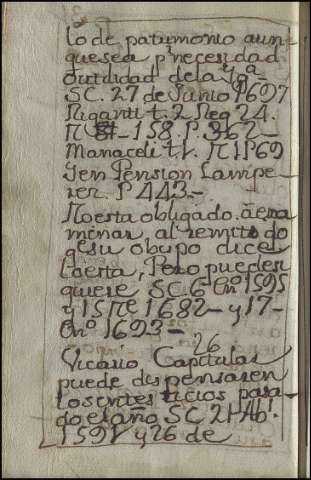 lo de patrimonio aun
que sea pr necesidad
o utilidad de la Ygª
SC. 27 de Junio 1697
Niganti t. 2 Neg 24.
n 158. P. 362 -
Monaceli t. 1. P 69
Ien Pension Lampe
ren. P 443. -
No esta obligado. a exa
minar al remitido
de su obispo dice
la esta, Pero puede si
quiere SC. 6 En.º 1595
y 15 1682 - y 17 -
En.º 1693 -
26
Vicario Capitular
puede dispensar en
los intersticios pasa
do el año SC 21 Ab.
1591 y 26 de